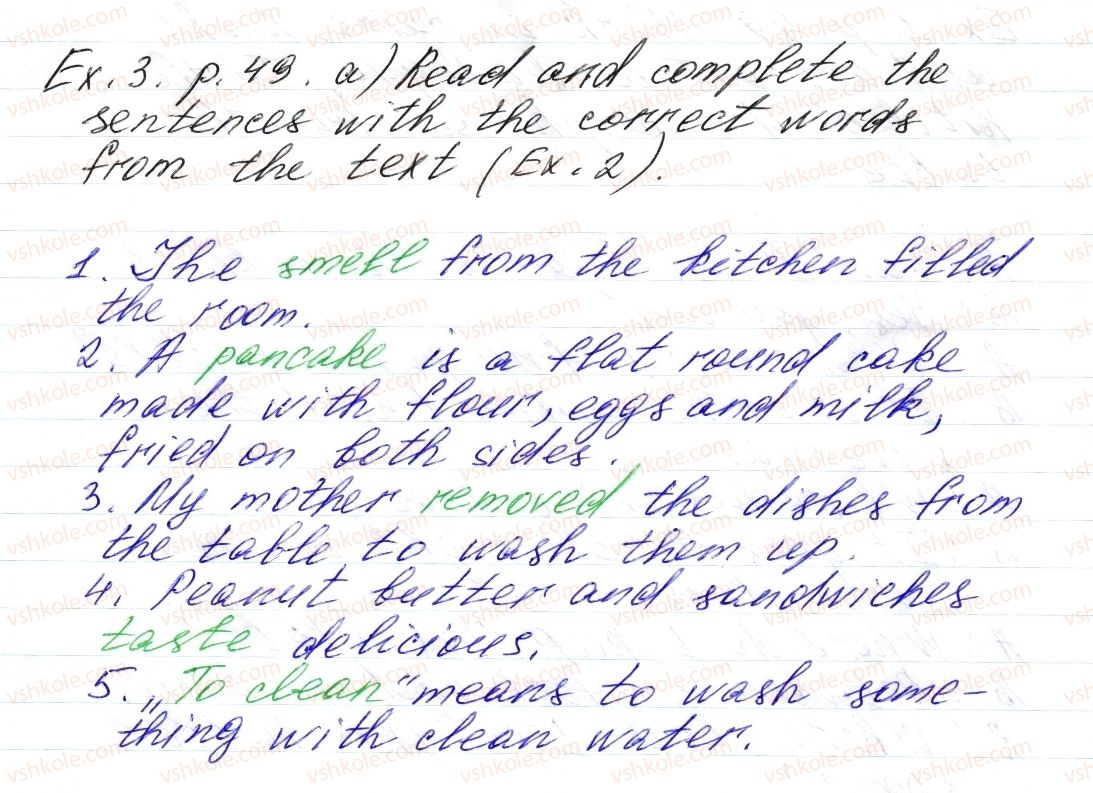 Ex. 3. p. 49. a) Read and complete the
sentences with the correct words
from the text (Ex. 2).
1. The smell from the kitchen filled
the room.
2. A pancake is a flat round cake
made with flour, eggs and milk,
fried on both sides.
3. My mother removed the dishes from
the table to wash them up.
4. Peanut butter and sandwiches
taste delicious.
5. „To clean“ means to wash some-
thing with clean water.